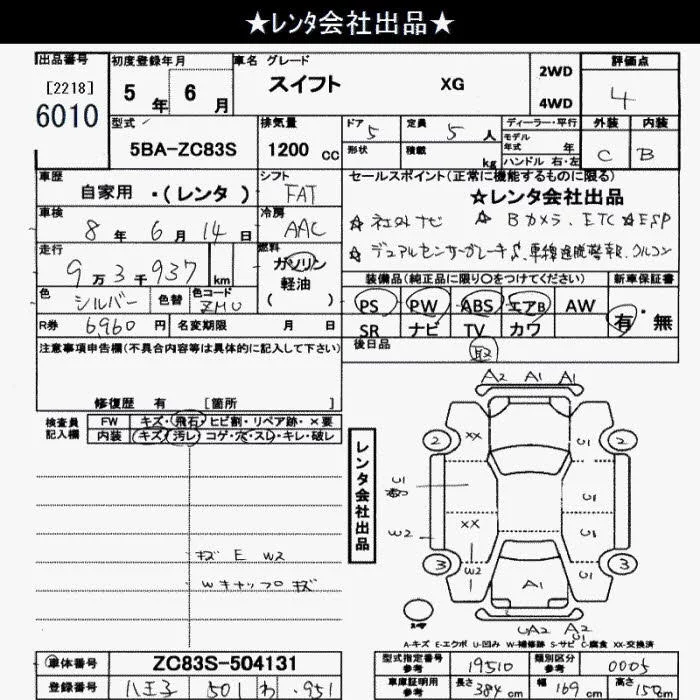 ★レンタ会社出品★
出品番号 初度登録年月 車名 グレード 評価点
[2218] 5年 6月 スイフト XG 2WD 4
6010 4WD
型式 排気量 ドア 5 定員 5人 ディーラー・平行 外装 内装
5BA-ZC83S 1200cc 形状 積載 kg モデル年式 年 C B
ハンドル 右・左
車歴 シフト セールスポイント(正常に機能するものに限る)
自家用 ・(レンタ) FAT ★レンタ会社出品
車検 8年 6月 14日 冷房 AAC ☆社外ナビ ☆Bカメラ、ETC ☆ESP
走行 9万3千937km 燃料 ガソリン 軽油 ( )
装備品(純正品に限り○をつけてください) 新車保証書
色 シルバー 色替 色コード ZMU PS PW ABS エアB AW 有・無
R券 6960円 名変期限 月 日 SR ナビ TV カワ
注意事項申告欄(不具合内容等は具体的に記入して下さい) 後日品 取
修復歴 有 [箇所 ]
A2 A1 A1
検査員記入欄 FW キズ・飛石・ヒビ割・リペア跡・×要
内装 キズ・汚レ・コゲ・穴・スレ・キレ・破レ
レンタ会社出品
2 XX U1 2
U1 U1
W2 XX U1
3 W2 U1 3
キズ E W2
Wキャップ キズ
A1
UA2 A2
A-キズ E-エクボ U-凹み W-補修跡 S-サビ C-腐食 XX-交換済
車体番号 ZC83S-504131 型式指定番号 19510 類別区分番号 0005
登録番号 八王子 501 わ ・951 車庫証明用参考 長さ 384cm 幅 169cm 高さ 150cm